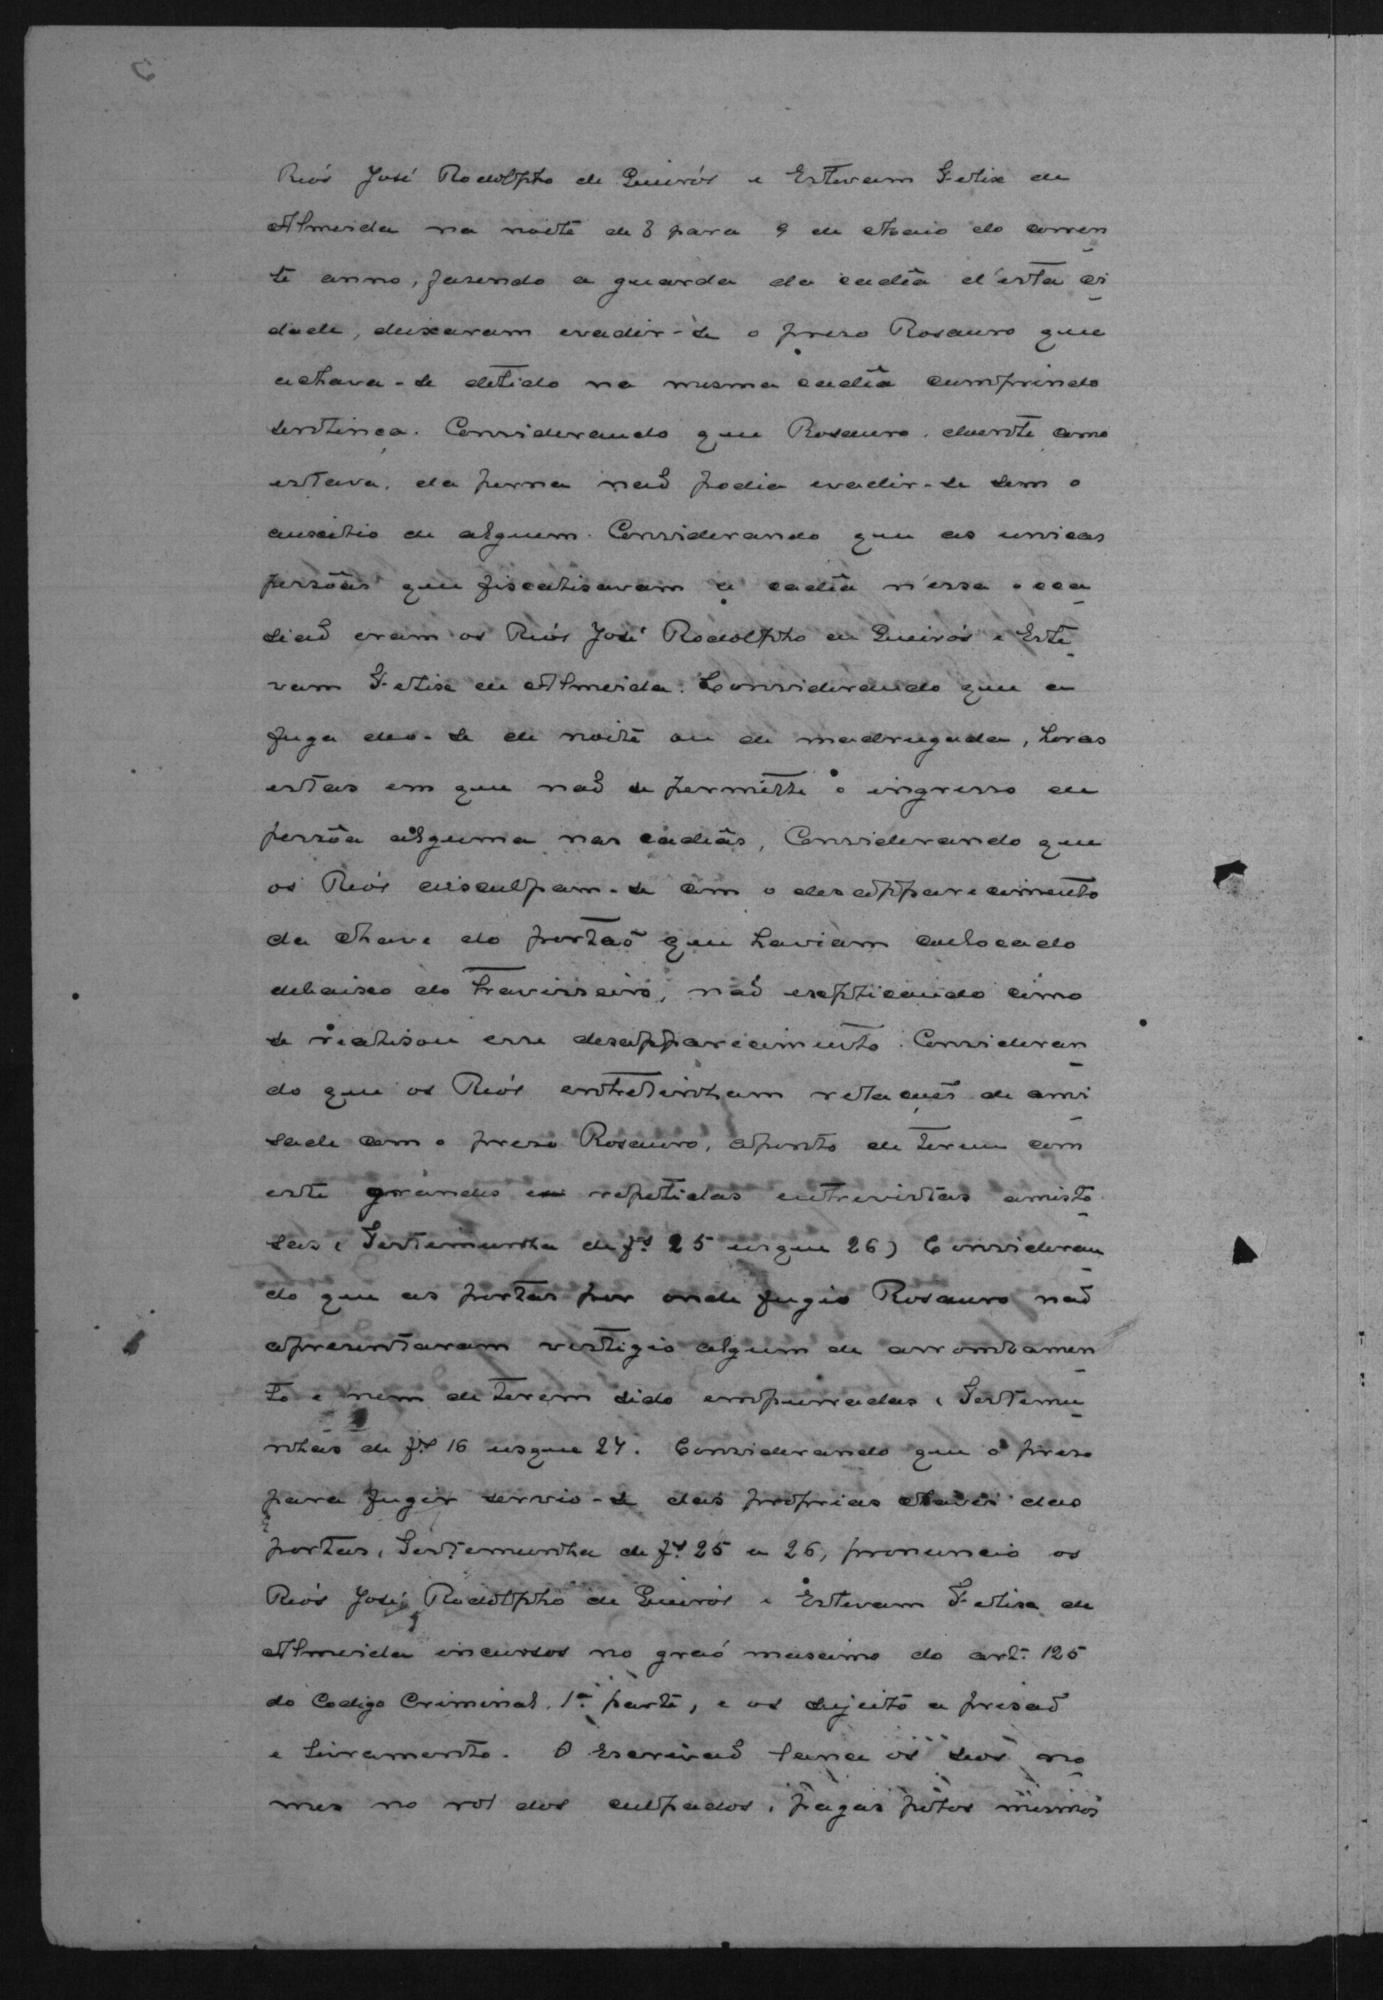 Reós José Rodolpho de Queirós e Estevam Felix de
Almeida na noite de 8 para 9 de Maio do corren
te anno, fasendo a guarda da cadêa d'esta ci
dade, deixaram evadir-se o preso Rosauro que
achava-se detido na mesma cadêa cumprindo
sentença. Considerando que Rosauro, doente como
estava, da perna naõ podia evadir-se sem o
auxilio de alguem. Considerando que as unicas
pessôas que fiscalisavam a cadêa n'essa occa
siaõ eram os Reós José Rodolpho de Queirós e Este
vam Felix de Almeida. Considerando que a
fuga deo-se de noite ou de madrugada, horas
estas em que naõ se permitte o ingresso de
pessôa alguma nas cadêas, Considerando que
os Reós disculpam-se com o desapparecimento
da chave do portaõ que haviam collocado
debaixo do travisseiro, naõ explicando como
se realisou esse desapparecimento. Consideran
do que os Reós entretinham relações de ami
sade com o preso Rosauro, aponto de terem com
este grandes e repetidas entrevistas amisto
sas (Testemunha de fs 25 usque 26) Consideran
do que as portas por onde fugio Rosauro naõ
apresentaram vestigio algum de arrombamen
to e nem de terem sido empurradas (Testemu
nhas de fs 16 usque 24. Considerando que o preso
para fugir servio-se das proprias chaves das
portas, Testemunha de fs 25 a 26, pronuncio os
Reós José Rodolpho de Queirós e Estevam Felix de
Almeida incursos no graó maximo do art. 125
do Codigo Criminal. 1ª parte, e os sujeito a prisaõ
e livramento. O Escrivaõ lance os seos no
mes no rol dos culpados, pagas pelos mesmos